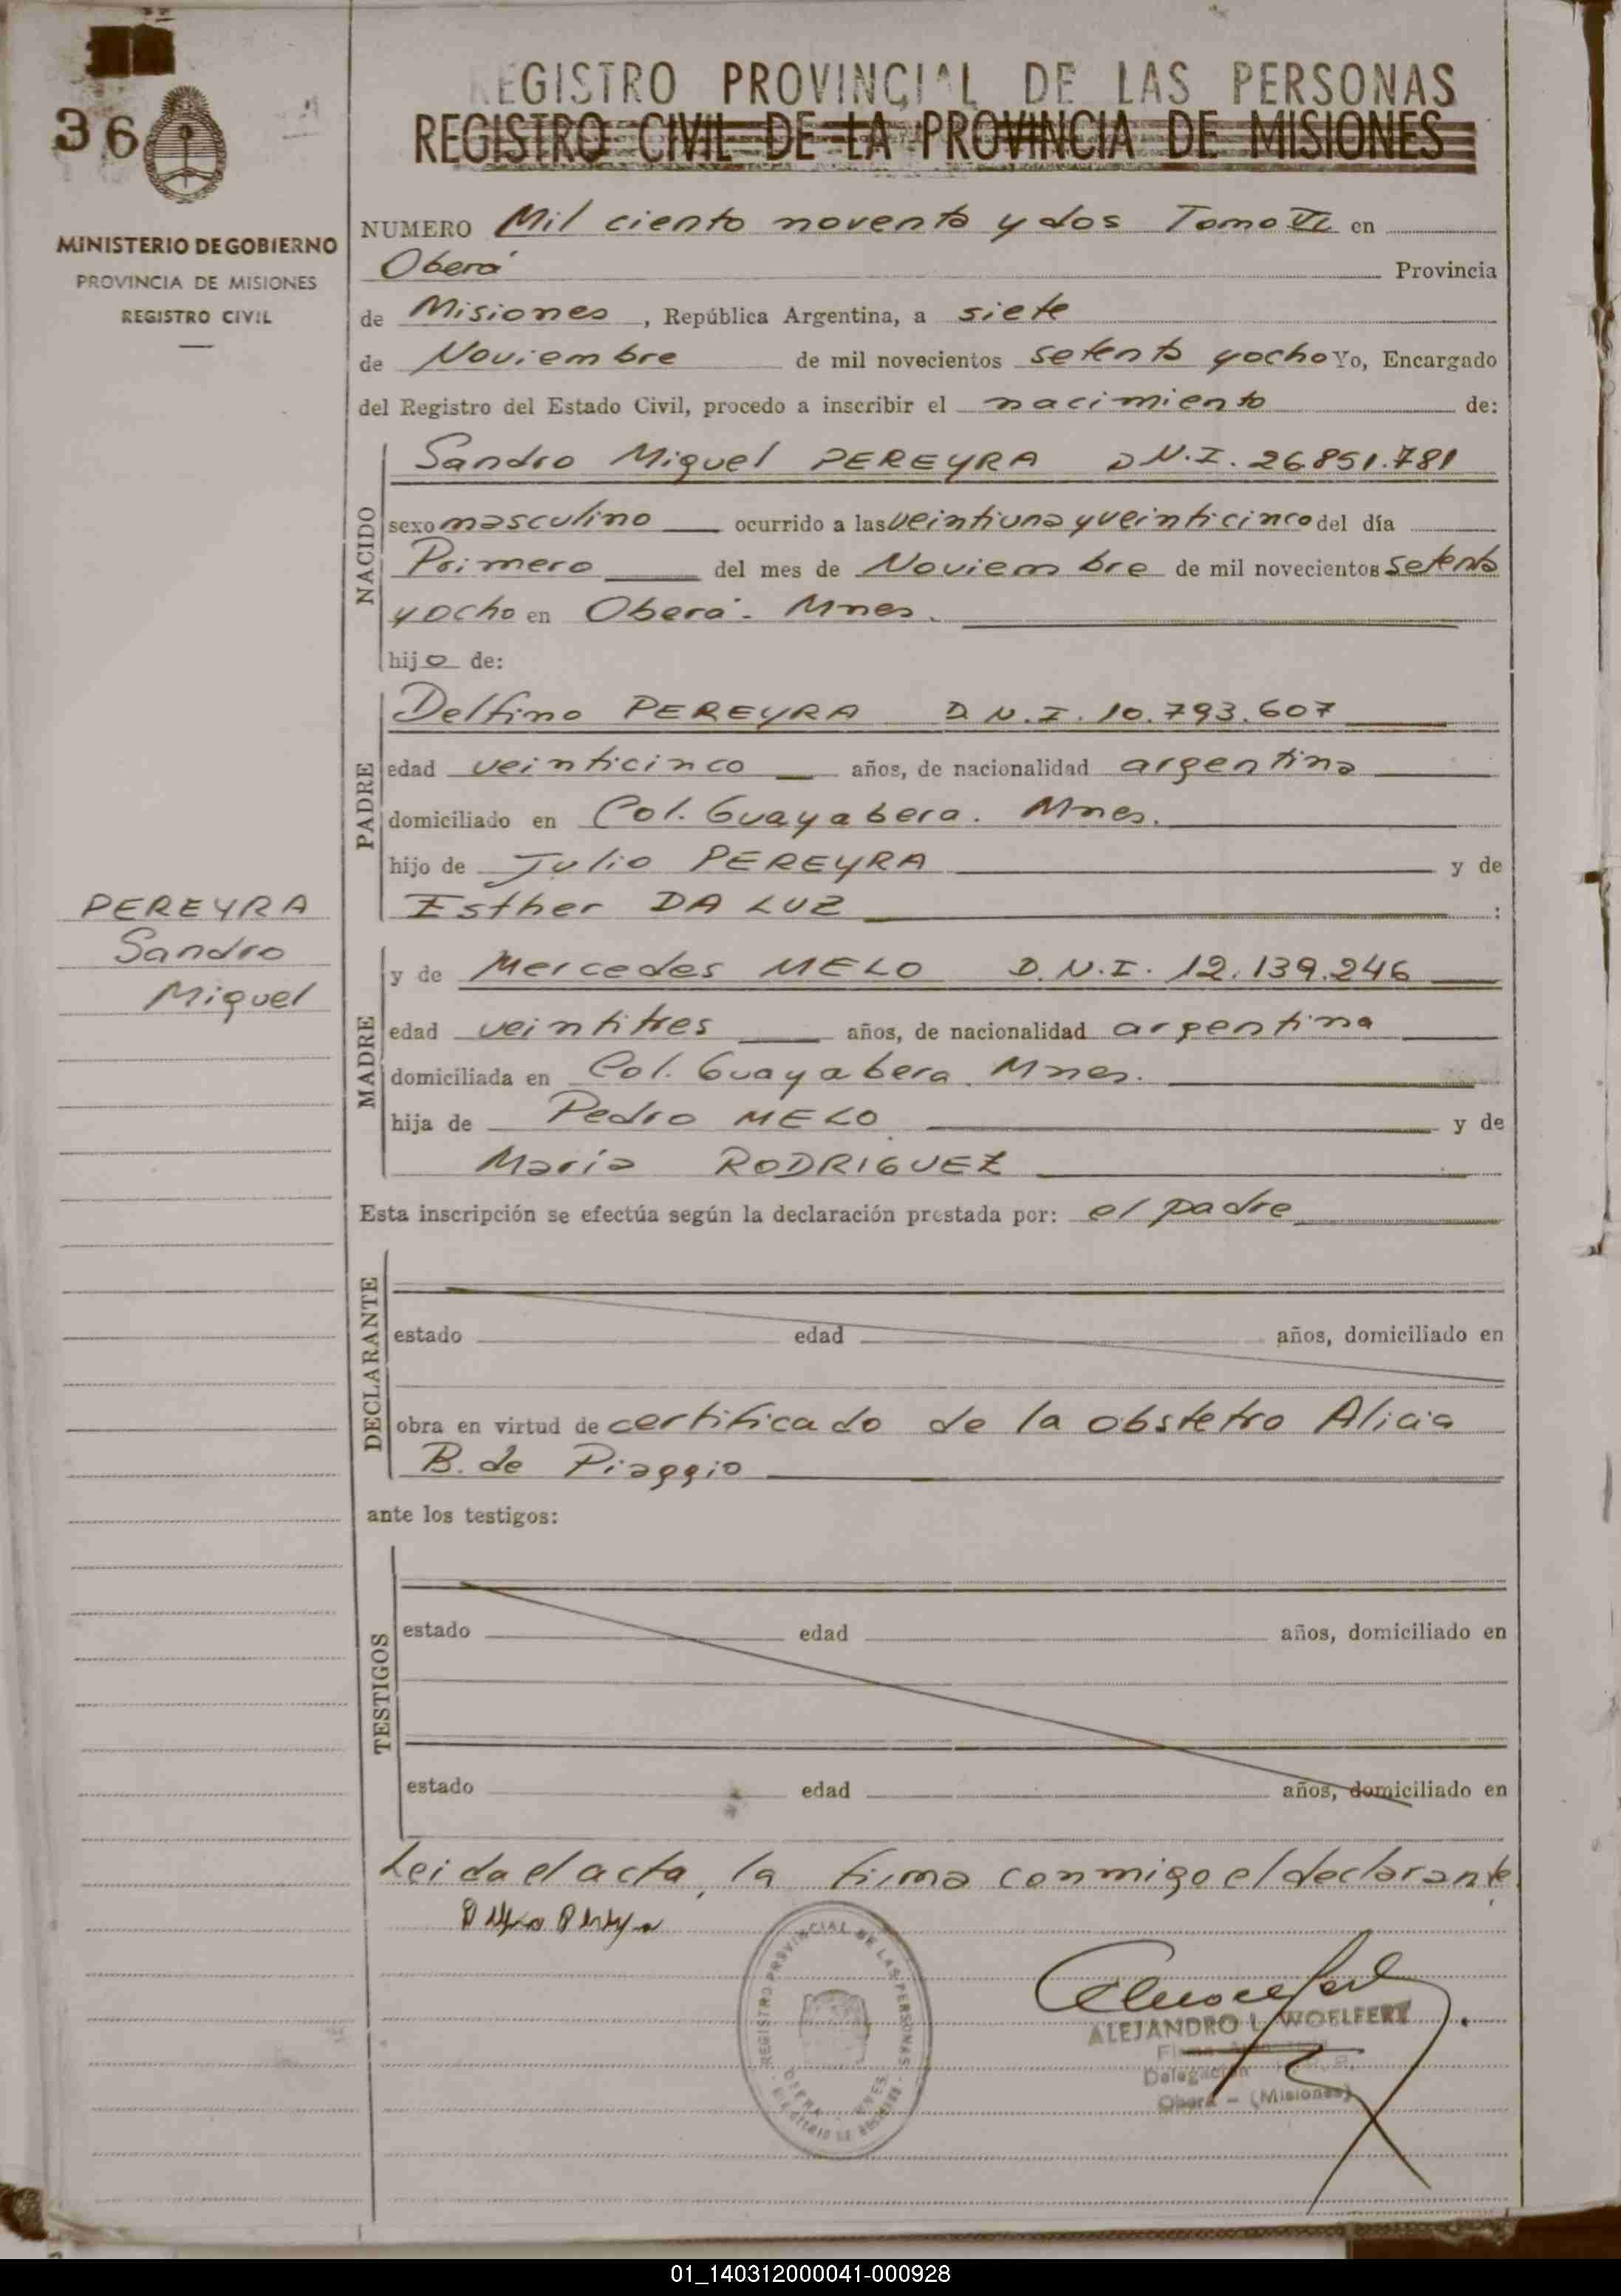 36
MINISTERIO DE GOBIERNO
PROVINCIA DE MISIONES
REGISTRO CIVIL
REGISTRO PROVINCIAL DE LAS PERSONAS
REGISTRO CIVIL DE LA PROVINCIA DE MISIONES
NUMERO Mil ciento noventa y dos Tomo VI en
Oberá Provincia
de Misiones, República Argentina, a siete
de Noviembre de mil novecientos setenta y ocho Yo, Encargado
del Registro del Estado Civil, procedo a inscribir el nacimiento de:
NACIDO
Sandro Miguel PEREYRA D.N.I. 26.851.781
sexo masculino ocurrido a las veintiuna y veinticinco del día
Primero del mes de Noviembre de mil novecientos setenta
y ocho en Oberá. Mnes.
hijo de:
PADRE
Delfino PEREYRA D.N.I. 10.793.607
edad veinticinco años, de nacionalidad argentina
domiciliado en Col. Guayabera. Mnes.
hijo de Julio PEREYRA y de
Esther DA LUZ :
PEREYRA
Sandro
Miguel
MADRE
y de Mercedes MELO D.N.I. 12.139.246
edad veintitres años, de nacionalidad argentina
domiciliada en Col. Guayabera. Mnes.
hija de Pedro MELO y de
María RODRIGUEZ
Esta inscripción se efectúa según la declaración prestada por: el padre
DECLARANTE
estado edad años, domiciliado en
obra en virtud de certificado de la obstetra Alicia
B. de Piaggio
ante los testigos:
TESTIGOS
estado edad años, domiciliado en
estado edad años, domiciliado en
Leida el acta, la firma conmigo el declarante.
REGISTRO PROVINCIAL DE LAS PERSONAS
ALEJANDRO L. WOELFERT
Delegación
Oberá - (Misiones)
01_140312000041-000928